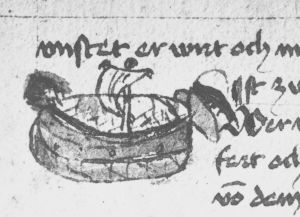 vnstet er wirt och m
ist zv
Wer v
fert och
võ dem